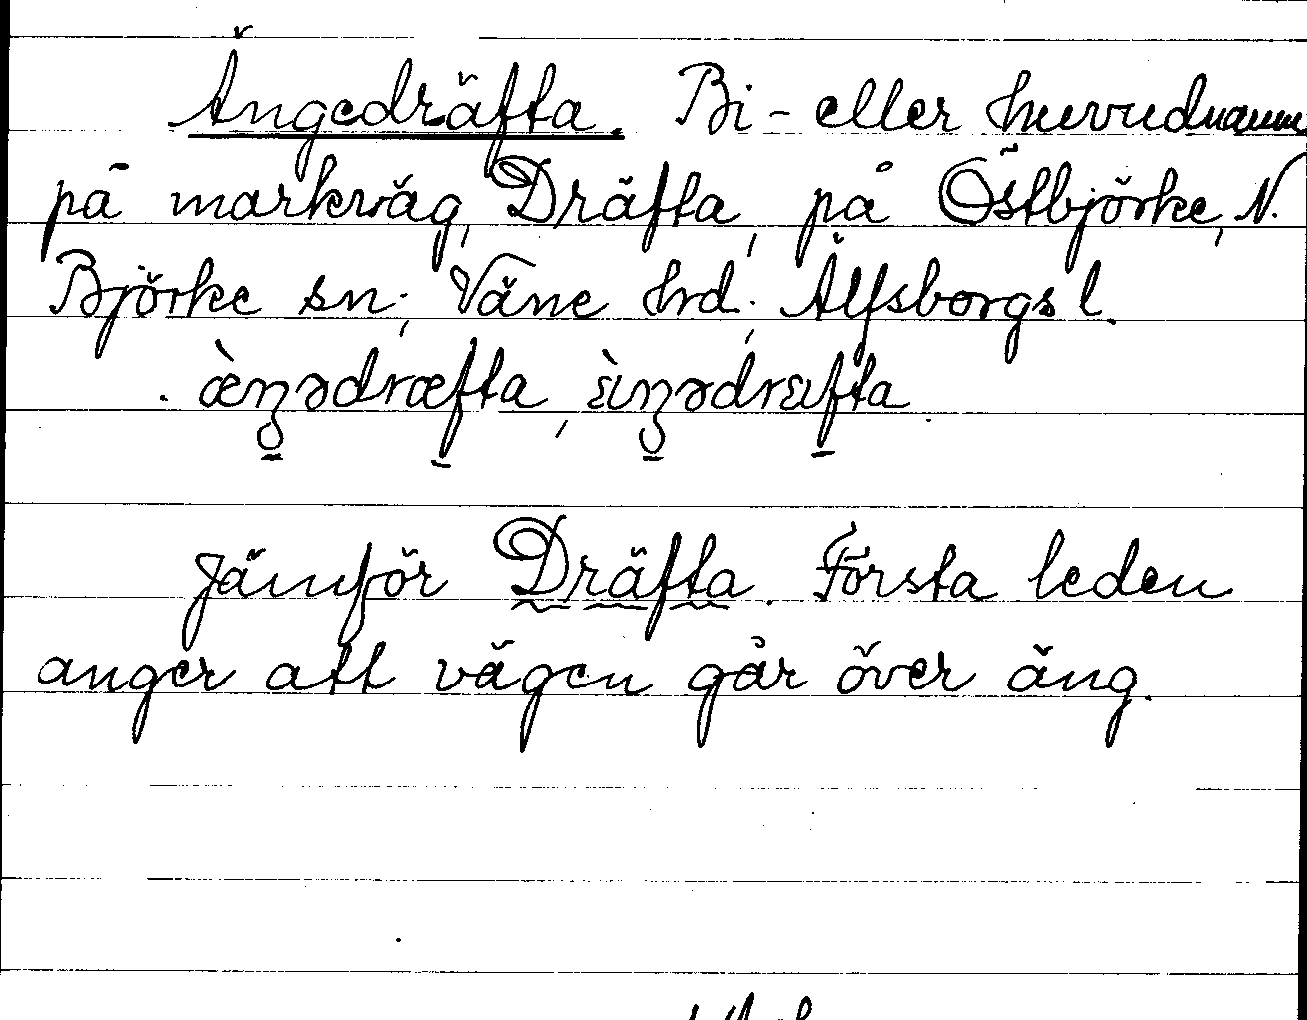 Ängedräfta. Bi- eller huvudnamn
på markväg, Dräfta, på Östbjörke, N.
Björke sn, Väne hrd, Älfsborgs l.
æ̀ŋədræfta, ɛ̀ıŋədrɛıfta
Jämför Dräfta. Första leden
anger att vägen går över äng.